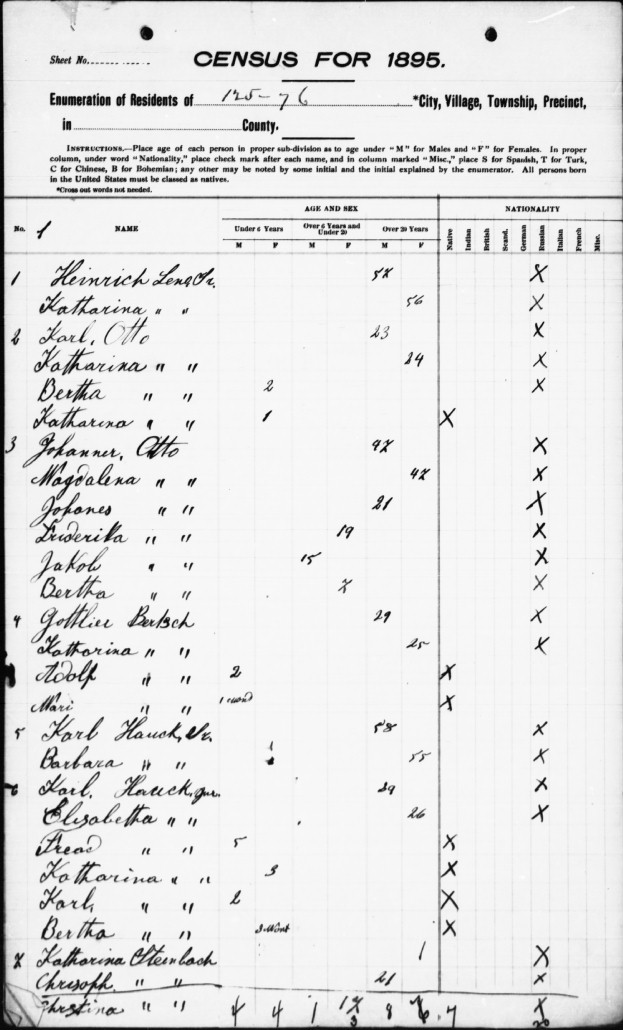 Sheet No.
CENSUS FOR 1895.
Enumeration of Residents of 125-76 *City, Village, Township, Precinct,
in County.
INSTRUCTIONS.—Place age of each person in proper sub-division as to age under "M" for Males and "F" for Females. In proper
column, under word "Nationality," place check mark after each name, and in column marked "Misc.," place S for Spanish, T for Turk,
C for Chinese, B for Bohemian; any other may be noted by some initial and the initial explained by the enumerator. All persons born
in the United States must be classed as natives.
*Cross out words not needed.
AGE AND SEX NATIONALITY
No. 1 NAME Under 6 Years Over 6 Years and Under 20 Over 20 Years Native Indian British Scand. German Russian Italian French Misc.
M F M F M F
1 Heinrich Sr. 57 X
Katharina " " 56 X
2 Karl, Otto 23 X
Katharina " " 24 X
Bertha " " 2 X
Katharina " " 1 X
3 Johanner, Otto 47 X
Magdalena " " 47 X
Johanes " " 21 X
Friderika " " 19 X
Jakob " " 15 X
Bertha " " 7 X
4 Gottlieb Bertsch 29 X
Katharina " " 25 X
Adolf " " 2 X
Mari " " 1 X
5 Karl Hauck, Sr. 58 X
Barbara " " 55 X
6 Karl, Hauck, Jur. 29 X
Elisabetha " " 26 X
Fread " " 5 X
Katharina " " 3 X
Karl, " " 2 X
Bertha " " 3 Mont X
7 Katharina Steinbach 1 X
Chrisoph " " 21 X
Christina " " 4 4 1 8 7 X
20